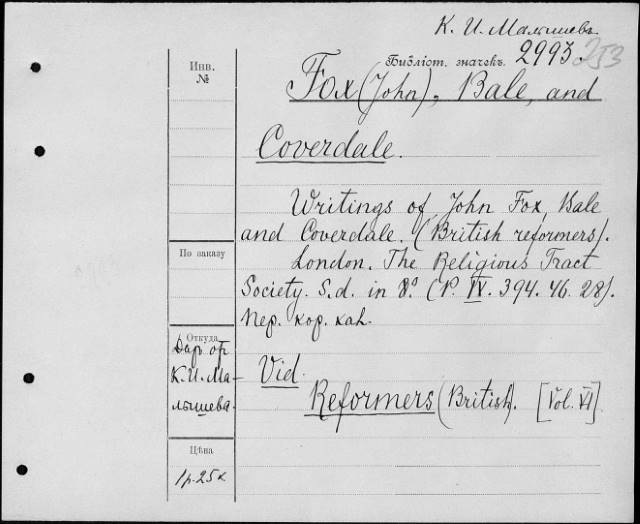 К. И. Малышевъ
Библіот. значекъ. 2993. 253
Fox (John), Bale, and
Coverdale.
Writings of John Fox, Bale
and Coverdale. (British reformers).
London. The Religious Tract
Society. S.d. in 8.º (P. IV. 394. 46. 28).
Пер. кор. кан.
Vid.
Reformers (British). [Vol. VI]
Инв.
№
По заказу
Откуда
Даръ от
К. И. Ма-
лышева.
Цѣна
1р.25к